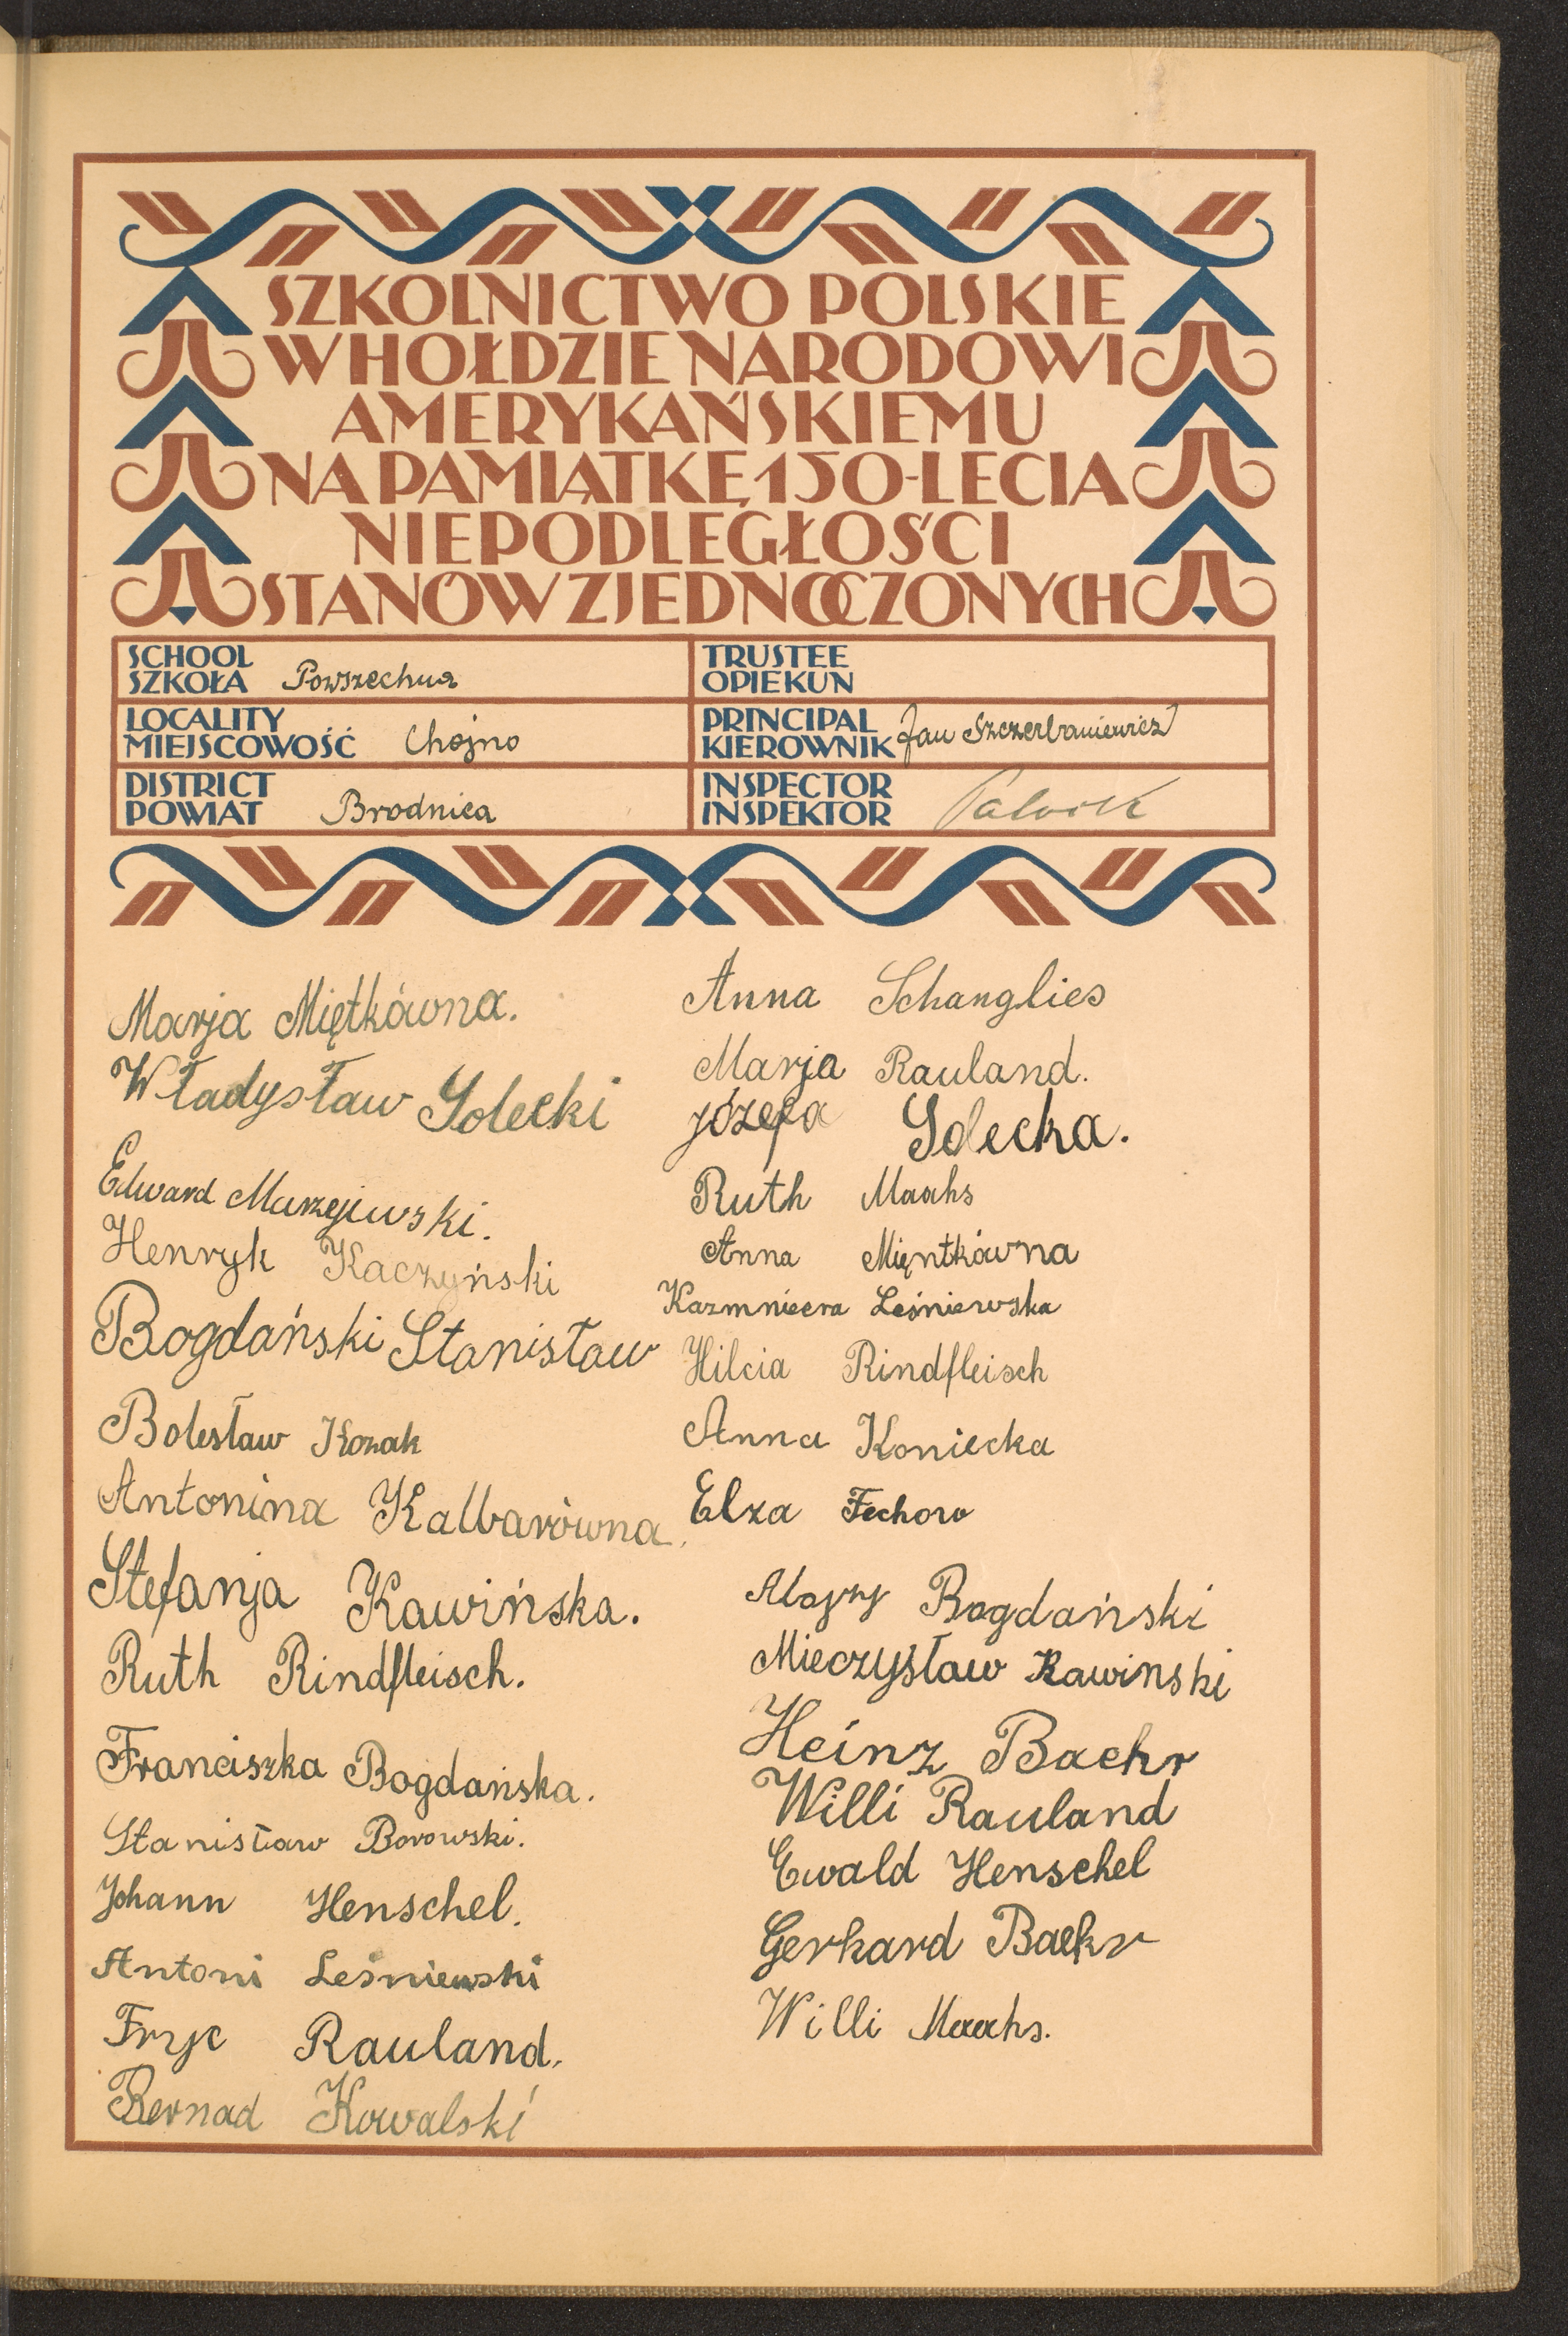 SZKOLNICTWO POLSKIE
W HOŁDZIE NARODOWI
AMERYKAŃSKIEMU
NA PAMIĄTKĘ 150-LECIA
NIEPODLEGŁOŚCI
STANÓW ZJEDNOCZONYCH
SCHOOL
SZKOŁA Powszechna
TRUSTEE
OPIEKUN
LOCALITY
MIEJSCOWOŚĆ Chojno
PRINCIPAL
KIEROWNIK Jan Szczerbaniewicz
DISTRICT
POWIAT Brodnica
INSPECTOR
INSPEKTOR
Marja Miętkówna.
Władysław Golecki
Edward Murzejewski.
Henryk Kaczyński
Bogdański Stanisław
Bolesław Kozak
Antonina Kalbarówna.
Stefanja Kawińska.
Ruth Rindfleisch.
Franciszka Bogdańska.
Stanisław Borowski.
Johann Henschel.
Antoni Leśniewski
Fryc Rauland.
Bernad Kowalski
Anna Schanglies
Marja Rauland.
Józefa Golecka.
Ruth Maahs
Anna Mięntkówna
Kazmniera Leśniewska
Hilcia Rindfleisch
Anna Koniecka
Elza Fechow
Alojzy Bogdański
Mieczysław Kawinski
Heinz Baehr
Willi Rauland
Ewald Henschel
Gerhard Baehr
Willi Maahs.